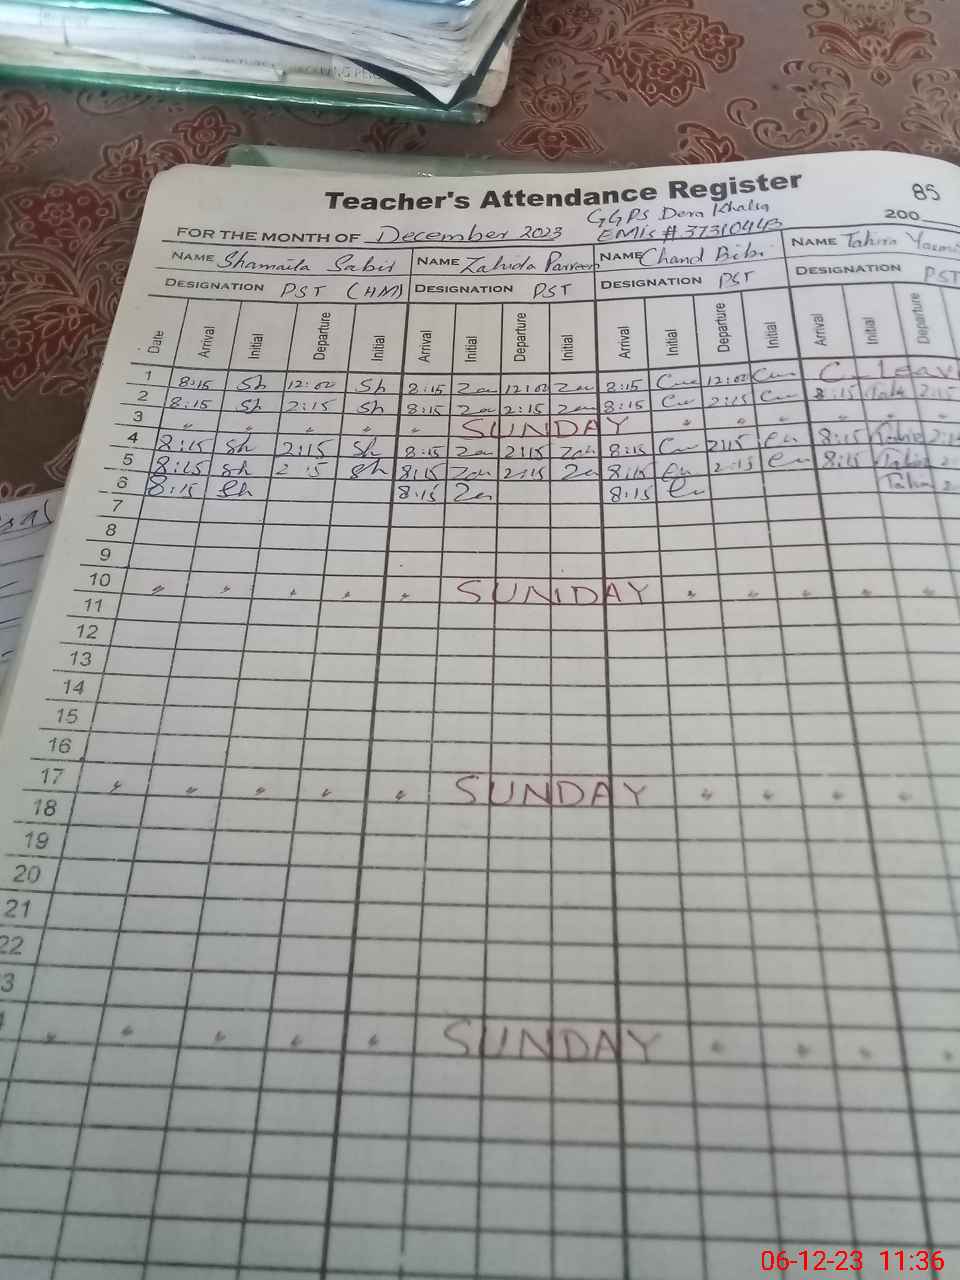 Teacher's Attendance Register
85
GGPS Dera Khalsa
200
FOR THE MONTH OF December 2023
EMIS # 37310443
NAME Shamaila Sabir NAME Zahida Parveen NAME Chand Bibi NAME Tahira
DESIGNATION PST (HM) DESIGNATION PST DESIGNATION PST DESIGNATION PST
Date Arrival Initial Departure Initial Arrival Initial Departure Initial Arrival Initial Departure Initial Arrival Initial Departure
1 8:15 Sh 12:00 Sh 8:15 Za 12:00 Za 8:15 12:00 Leav
2 8:15 Sh 2:15 Sh 8:15 Za 2:15 Za 8:15 2:15 8:15 2:15
3 " " " " " SUNDAY " " " " " "
4 8:15 Sh 2:15 Sh 8:15 Za 2:15 Zah 8:15 2:15 8:15
5 8:15 Sh 2 15 Sh 8:15 Zah 2:15 Za 8:15 2:15 8:15
6 8:15 Sh 8:15 Za 8:15
7
8
9
10 " " " " " SUNDAY " " " " "
11
12
13
14
15
16
17 " " " " " SUNDAY " " " "
18
19
20
21
22
3
" " " " " SUNDAY " " " "
06-12-23 11:36